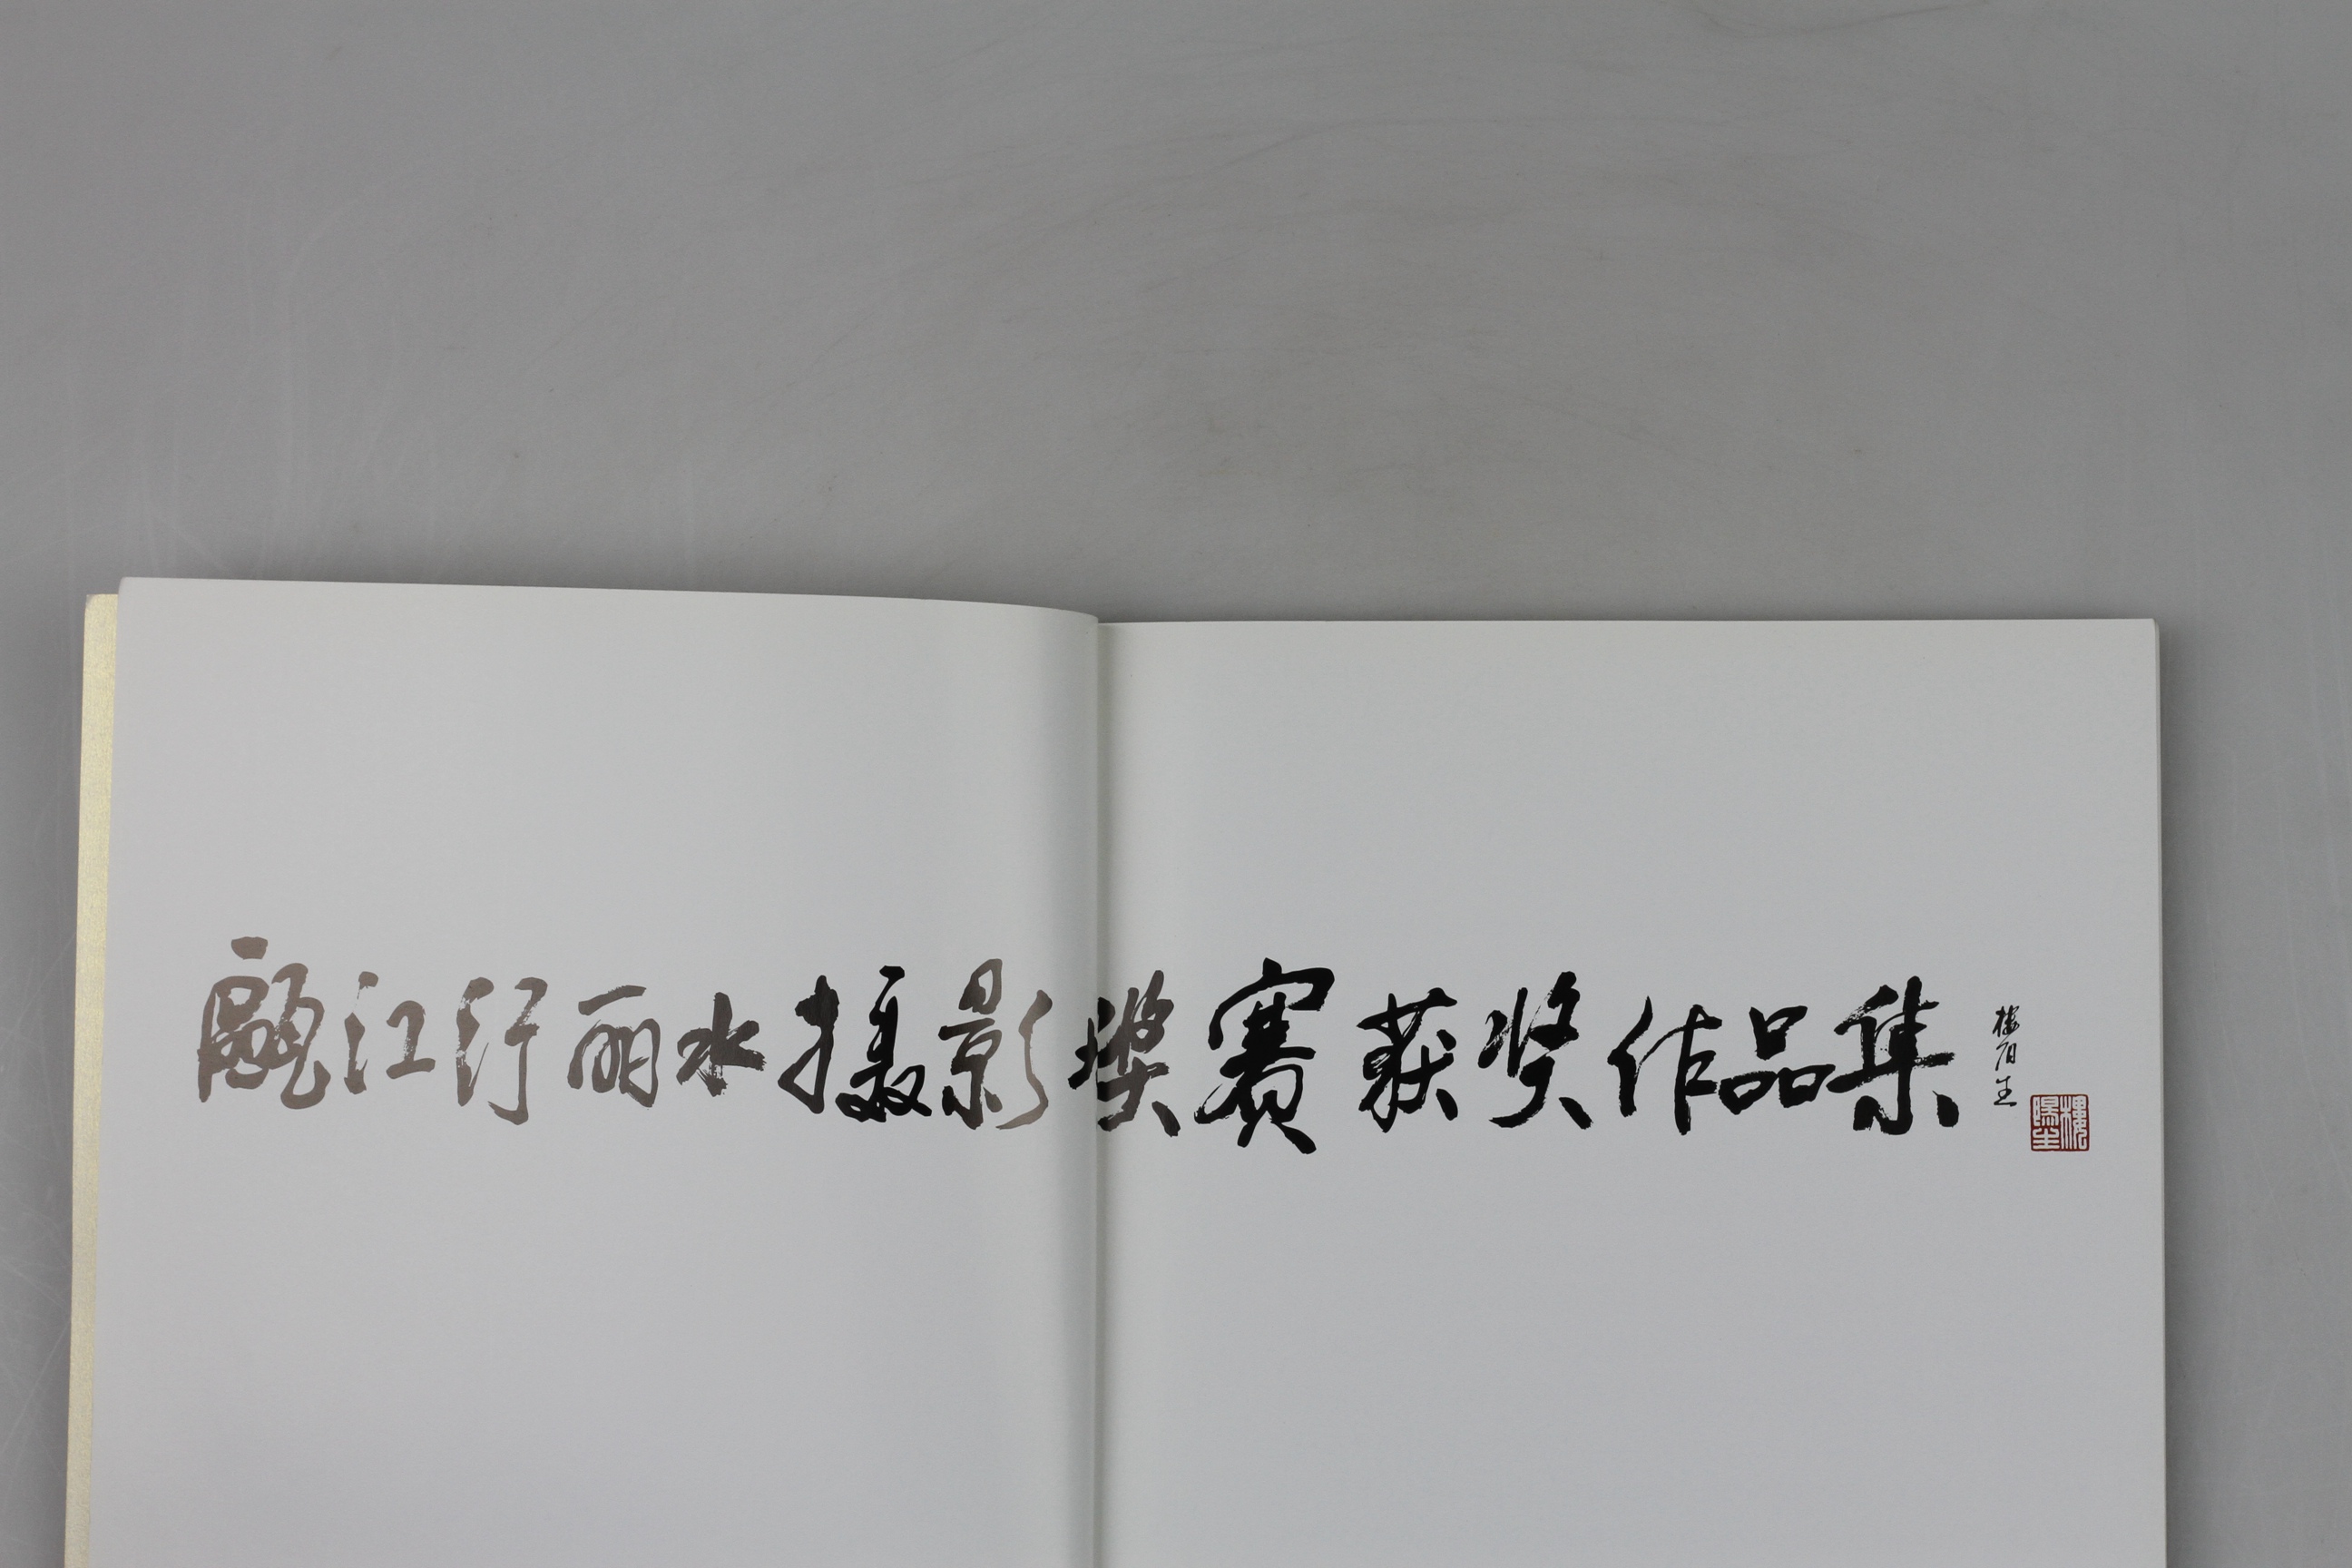 甌江行丽水摄影奖赛获奖作品集
楼阳生
樓陽生